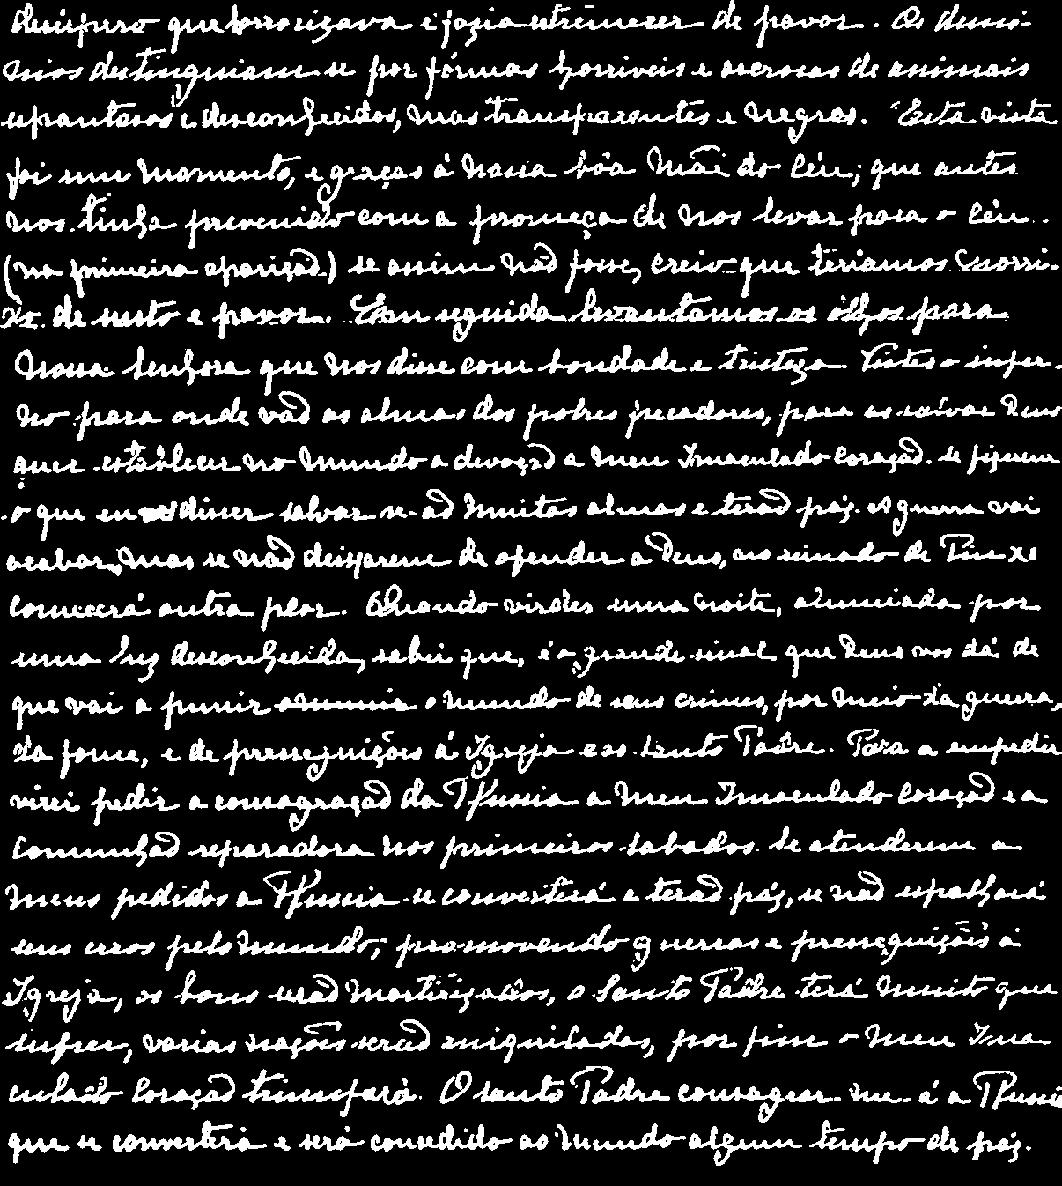 desespero que horrorizava e fazia estremecer de pavor. Os demo-
nios destinguiam-se por fórmas horriveis e ascrosas de animais
espantosos e desconhecidos, mas transparentes e negros. Esta vista
foi um momento, e graças á nossa bôa Mãi do Céu; que antes
nos tinha prevenido com a promeça de nos levar para o Céu
(na primeira aparição) se assim não fosse, creio que teriamos morri-
do de susto e pavor. Em seguida, levantamos os olhos para
Nossa Senhora que nos disse com bondade e tristeza. Vistes o infer-
no para onde vão as almas dos pobres pecadores, para as salvar Deus
quer establecer no mundo a devoção a meu Imaculado Coração. se fizerem
o que eu disser salvar-se-ão muitas almas e terão paz. A guerra vai
acabar, mas se não deixarem de ofender a Deus, no reinado de Pio XI
começará outra peor. Quando virdes uma noite, alumiada por
uma luz desconhecida, sabei que, é o grande sinal que Deus vos dá de
que vai a punir o mundo de seus crimes, por meio da guerra,
da fome, e de perseguições á Igreja e ao Santo Padre. Para a empedir
virei pedir a consagração da Russia a meu Imaculado Coração e a
Comunhão reparadora nos primeiros sabados. Se atenderem a
meus pedidos a Russia se converterá e terão paz, se não espalhará
seus erros pelo mundo, promovendo guerras e perseguições á
Igreja, os bons serão martirizados, o Santo Padre terá muito que
sufrer, varias nações serão aniquiladas, por fim o meu Ima
culado Coração triunfará. O Santo Padre consagrar-me-á a Russia
que se converterá e será concedido ao mundo algum tempo de paz.